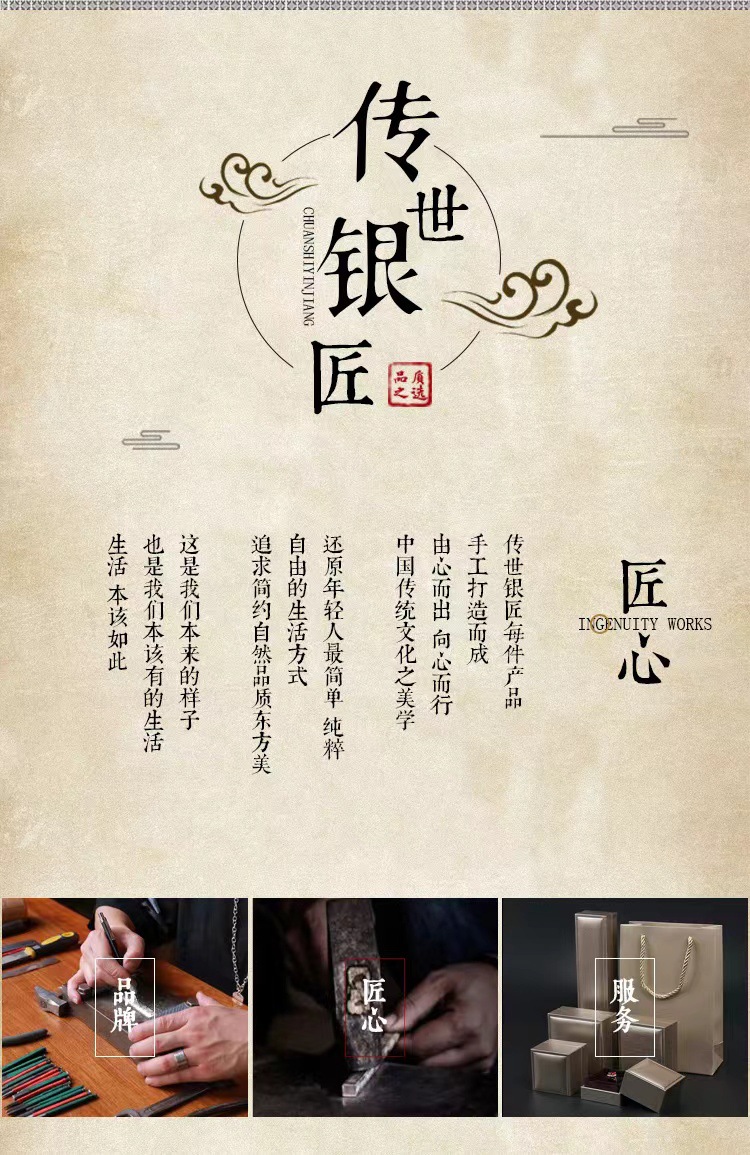 传世
银匠
CHUANSHIYINJIANG
品质
之选
匠心
INGENUITY WORKS
传世银匠每件产品
手工打造而成
由心而出 向心而行
中国传统文化之美学
还原年轻人最简单 纯粹
自由的生活方式
追求简约自然品质东方美
这是我们本来的样子
也是我们本该有的生活
生活 本该如此
品牌
匠心
服务